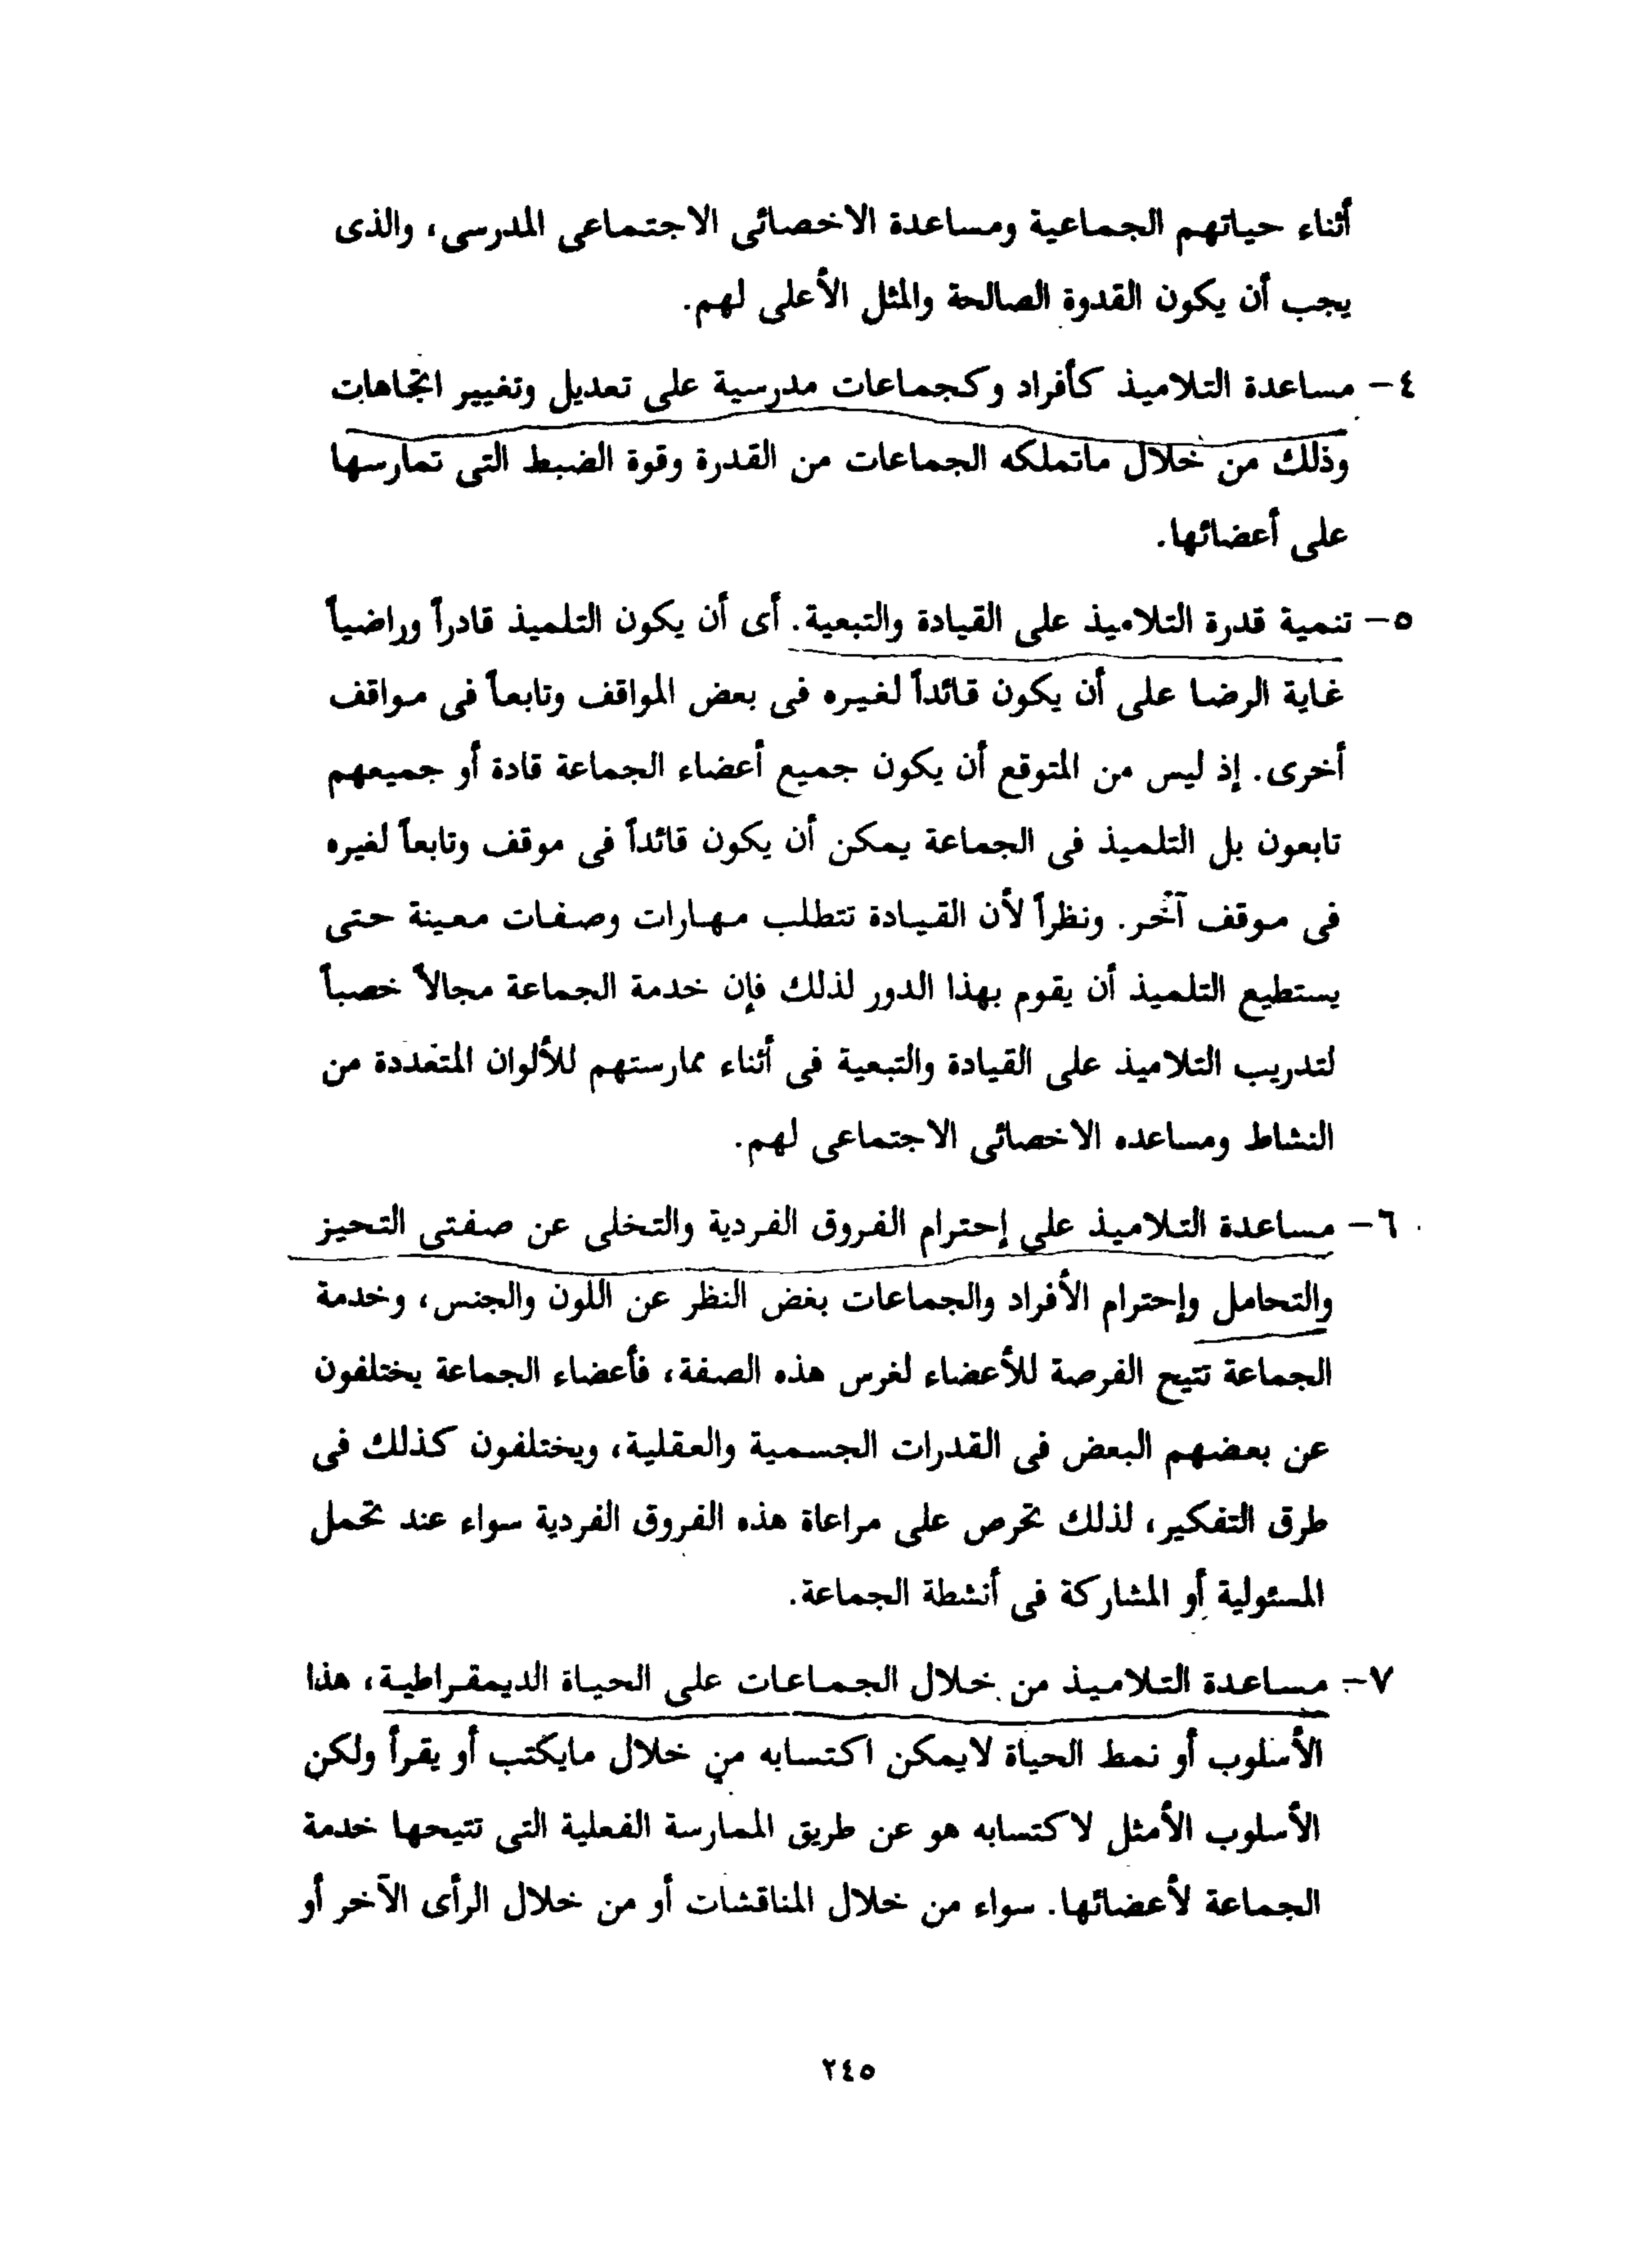 أثناء حياتهم الجماعية ومساعدة الاخصائى الاجتماعى المدرسى، والذى
يجب أن يكون القدوة الصالحة والمثل الأعلى لهم.
٤- مساعدة التلاميذ كأفراد وكجماعات مدرسية على تعديل وتغيير اتجاهات
وذلك من خلال ماتملكه الجماعات من القدرة وقوة الضبط التى تمارسها
على أعضائها.
٥- تنمية قدرة التلاميذ على القيادة والتبعية. أى أن يكون التلميذ قادراً وراضياً
غاية الرضا على أن يكون قائداً لغيره فى بعض المواقف وتابعاً فى مواقف
أخرى. إذ ليس من المتوقع أن يكون جميع أعضاء الجماعة قادة أو جميعهم
تابعون بل التلميذ فى الجماعة يمكن أن يكون قائداً فى موقف وتابعاً لغيره
فى موقف آخر. ونظراً لأن القيادة تتطلب مهارات وصفات معينة حتى
يستطيع التلميذ أن يقوم بهذا الدور لذلك فإن خدمة الجماعة مجالاً خصباً
لتدريب التلاميذ على القيادة والتبعية فى أثناء ممارستهم للألوان المتعددة من
النشاط ومساعده الاخصائى الاجتماعى لهم.
٦- مساعدة التلاميذ على إحترام الفروق الفردية والتخلى عن صفتى التحيز
والتحامل وإحترام الأفراد والجماعات بغض النظر عن اللون والجنس، وخدمة
الجماعة تتيح الفرصة للأعضاء لغرس هذه الصفة، فأعضاء الجماعة يختلفون
عن بعضهم البعض فى القدرات الجسمية والعقلية، ويختلفون كذلك فى
طرق التفكير، لذلك تحرص على مراعاة هذه الفروق الفردية سواء عند تحمل
المسئولية أو المشاركة فى أنشطة الجماعة.
٧- مساعدة التلاميذ من خلال الجماعات على الحياة الديمقراطية، هذا
الأسلوب أو نمط الحياة لايمكن اكتسابه من خلال مايكتب أو يقرأ ولكن
الأسلوب الأمثل لاكتسابه هو عن طريق الممارسة الفعلية التى تتيحها خدمة
الجماعة لأعضائها. سواء من خلال المناقشات أو من خلال الرأى الآخر أو
٢٤٥